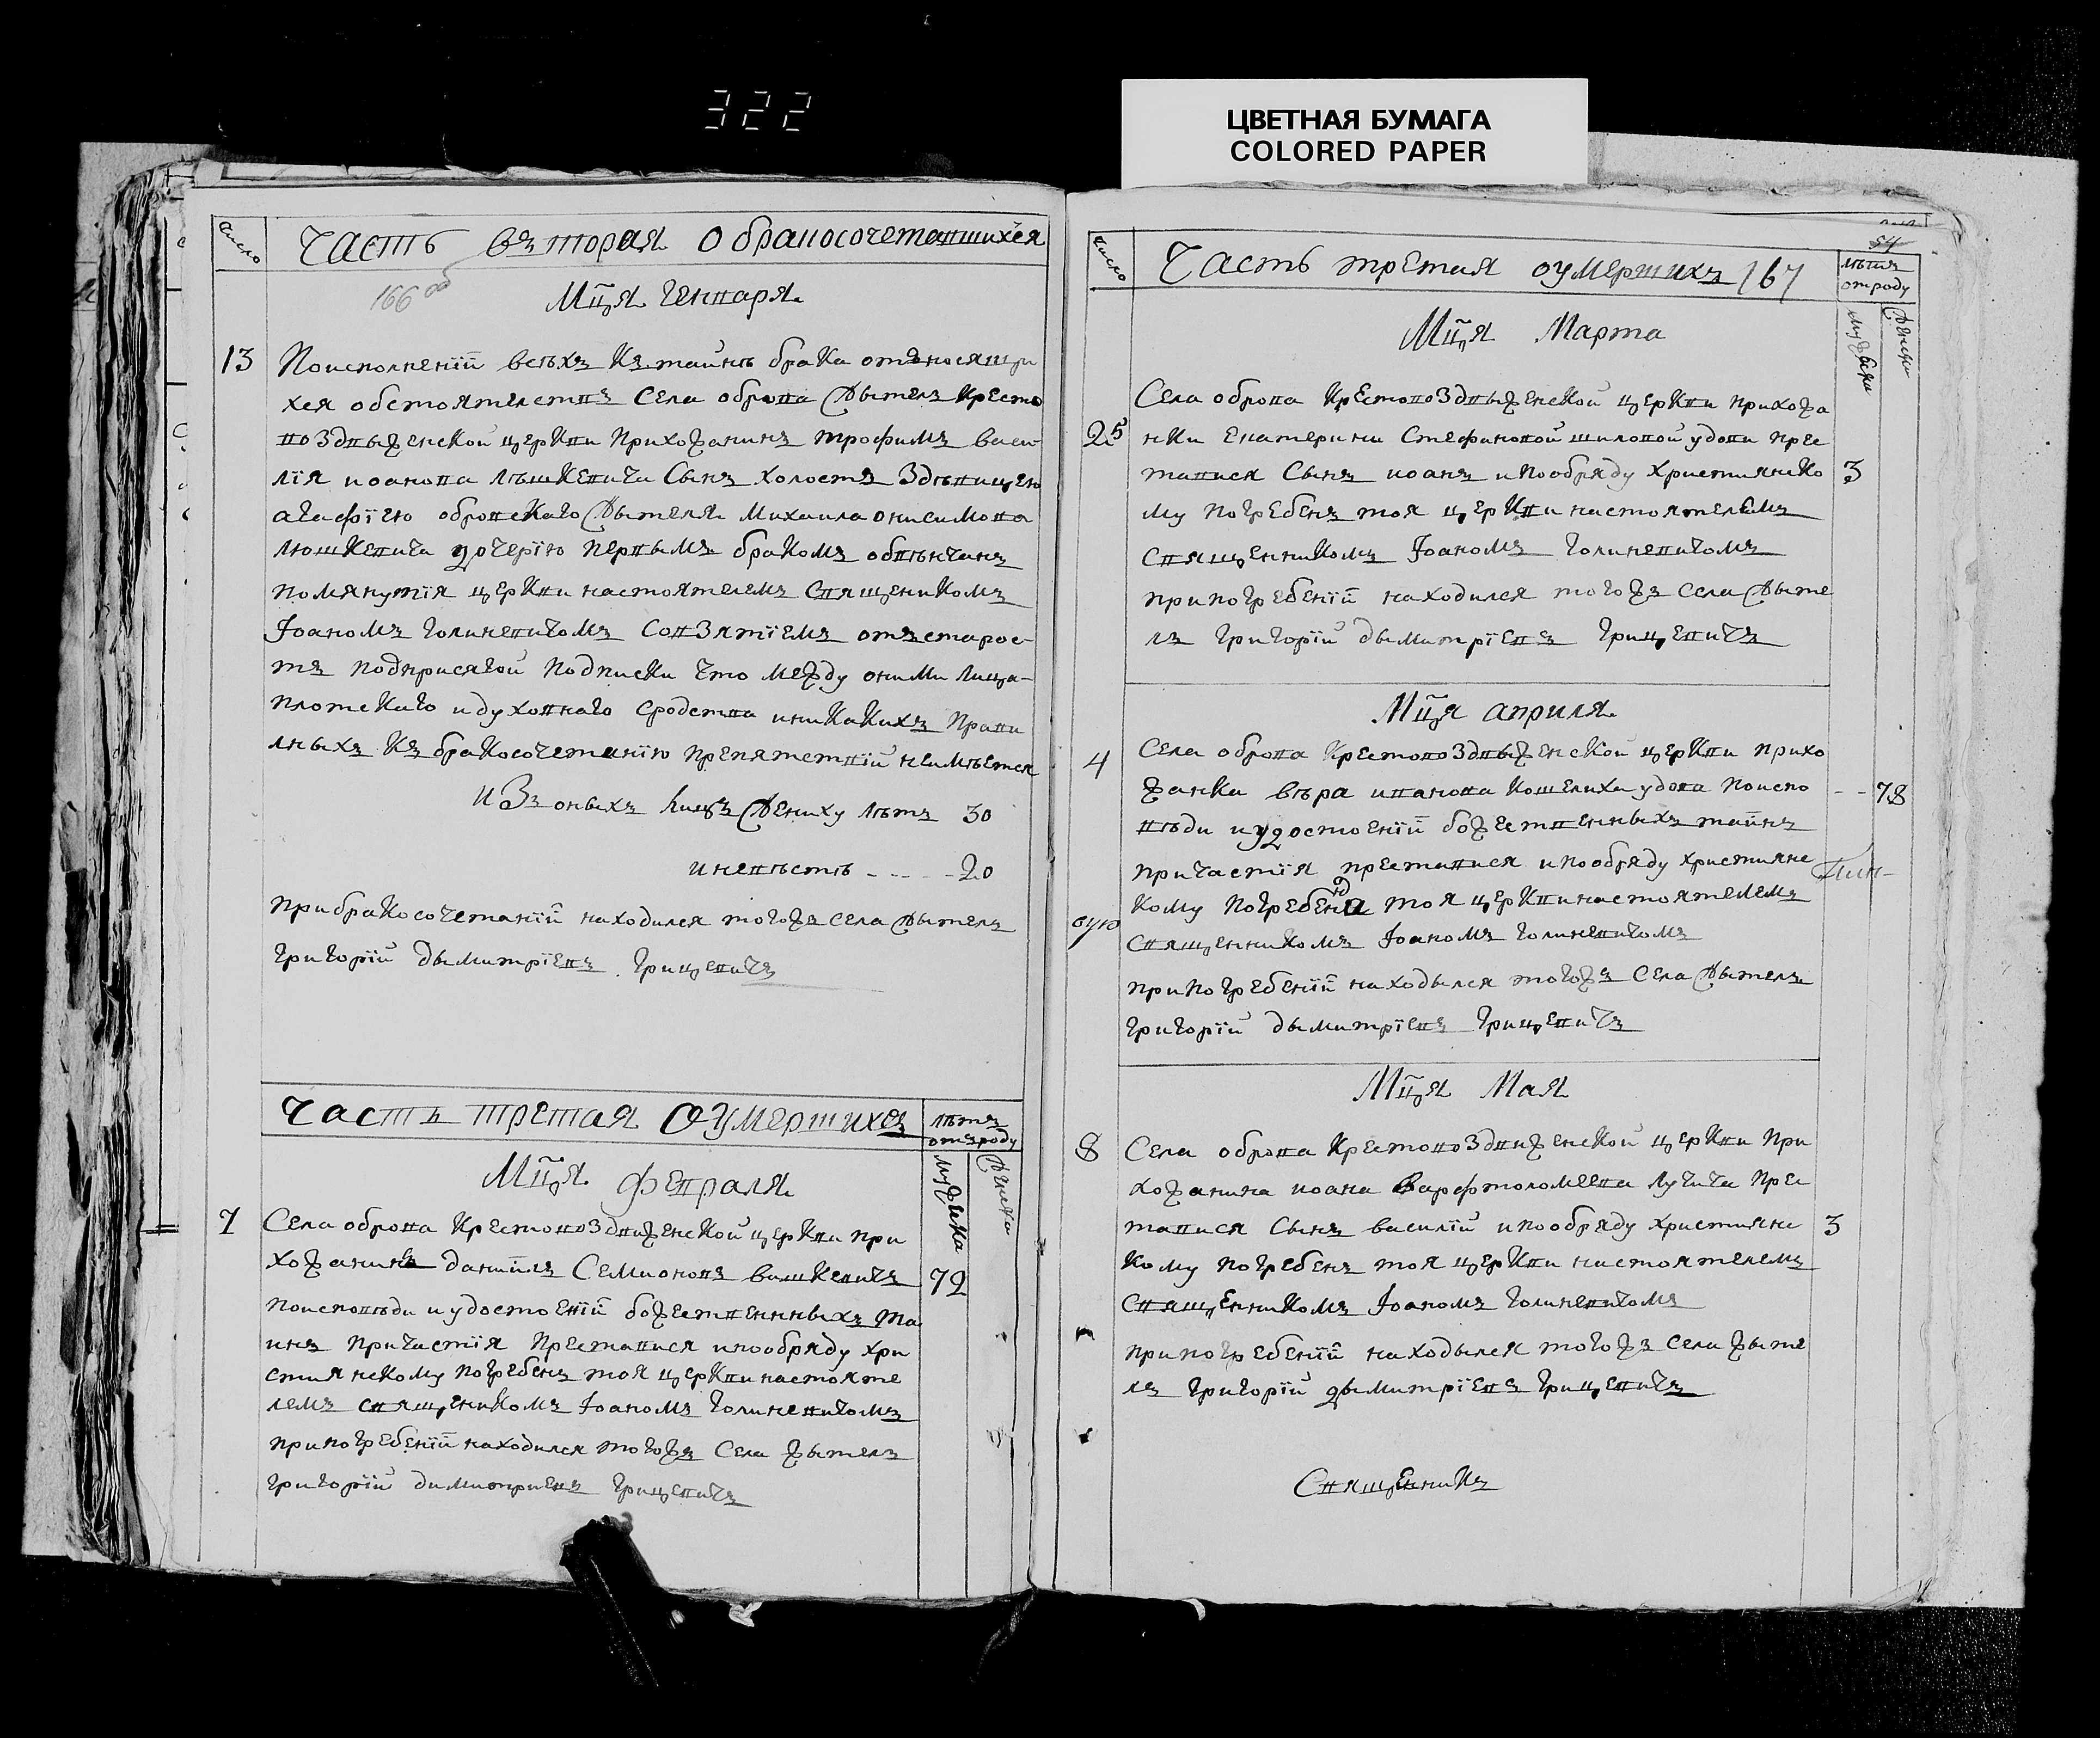 322
ЦВЕТНАЯ БУМАГА
COLORED PAPER
число
Часть въторая о бракосочетавшихся
166
Мц҃а Генваря
13
Поисполненіи всѣхъ Къ тайнѣ брака отъносящи
хся обстоятелствъ Села оброва Жытель Кресто
воздвыженской церкви Прихожанинъ трофимъ васи-
лія иоанова лѣшкевича Сынъ холостъ Здѣвицею
агафїею обровскаго Жытеля Михаила онисимова
люшкевича дочерїю первымъ бракомъ обвѣнчанъ
помянутїя церкви настоятелемъ Священикомъ
Іоаномъ Голиневичомъ Совзятїемъ отъстарос-
тъ подприсягой подписки что между оними лица-
плотскаго идуховнаго сродства иникакихъ Прави
лныхъ Къ бракосочетанїю препятствїй неимѣется
ИЗъ оныхъ лицъ Жениху лѣтъ 30
иневѣстѣ - - - - - 20
прибракосочетанїй находился тогожъ села Жытель
григорїй дымитрїевъ Грицевичъ
Часть третая Оумершихъ
лѣтъ
отъроду
мужеска
женска
Мц҃а февраля
7
Села оброва Крестовоздвиженской церкви при
хожанинъ данїилъ Семионовъ вашкевичъ
72
поисповѣди иудостоенїй божественныхъ та
инъ причастїя преставися ипообряду хри
стиянскому погребенъ тоя церкви настояте
лемъ священикомъ Іоаномъ Голиневичомъ
припогребенїй находился тогожъ Села жытель
григорїй димитриевъ Грицевичъ
54
число
Часть третая оумершихъ 167
лѣтъ
отроду
мужеска
женска
Мц҃а Марта
Села оброва Крестовоздвыженской церкви прихожа
25
нки Екатерини Стефановой шиловой удови прес
тавися Сынъ иоанъ ипообряду християнско
3
му погребенъ тоя церкви настоятелемъ
священникомъ Іоаномъ Голиневичомъ
припогребенїй находился тогожъ Села Жыте
ль Григорїй дымитрїевъ Грицевичъ
Мц҃а априля
Села оброва Крестовоздвыженской церкви прихо
4
жанка вѣра иванова Кошелиха удова поиспо
- - 78
вѣди иудостоенїй божественныхъ тайнъ
причастїя преставися ипообряду християнс
кому погребена тоя церкви настоятелемъ
священникомъ Іоаномъ Голиневичомъ
припогребенїй находылся тогожъ Села Жытель
григорїй дымитрїевъ Грицевичъ
Мц҃а Мая
8
Села оброва Крестовоздвиженской церкви при
хожанина иоана Варфтоломеева лучича прес
тавися Сынъ василїй ипообряду християнс
3
кому погребенъ тоя церкви настоятелемъ
священникомъ Іоаномъ Голиневичомъ
припогребенїй находылся тогожъ села жыте
ль григорїй дымитрїевъ Грицевичъ
Священникъ